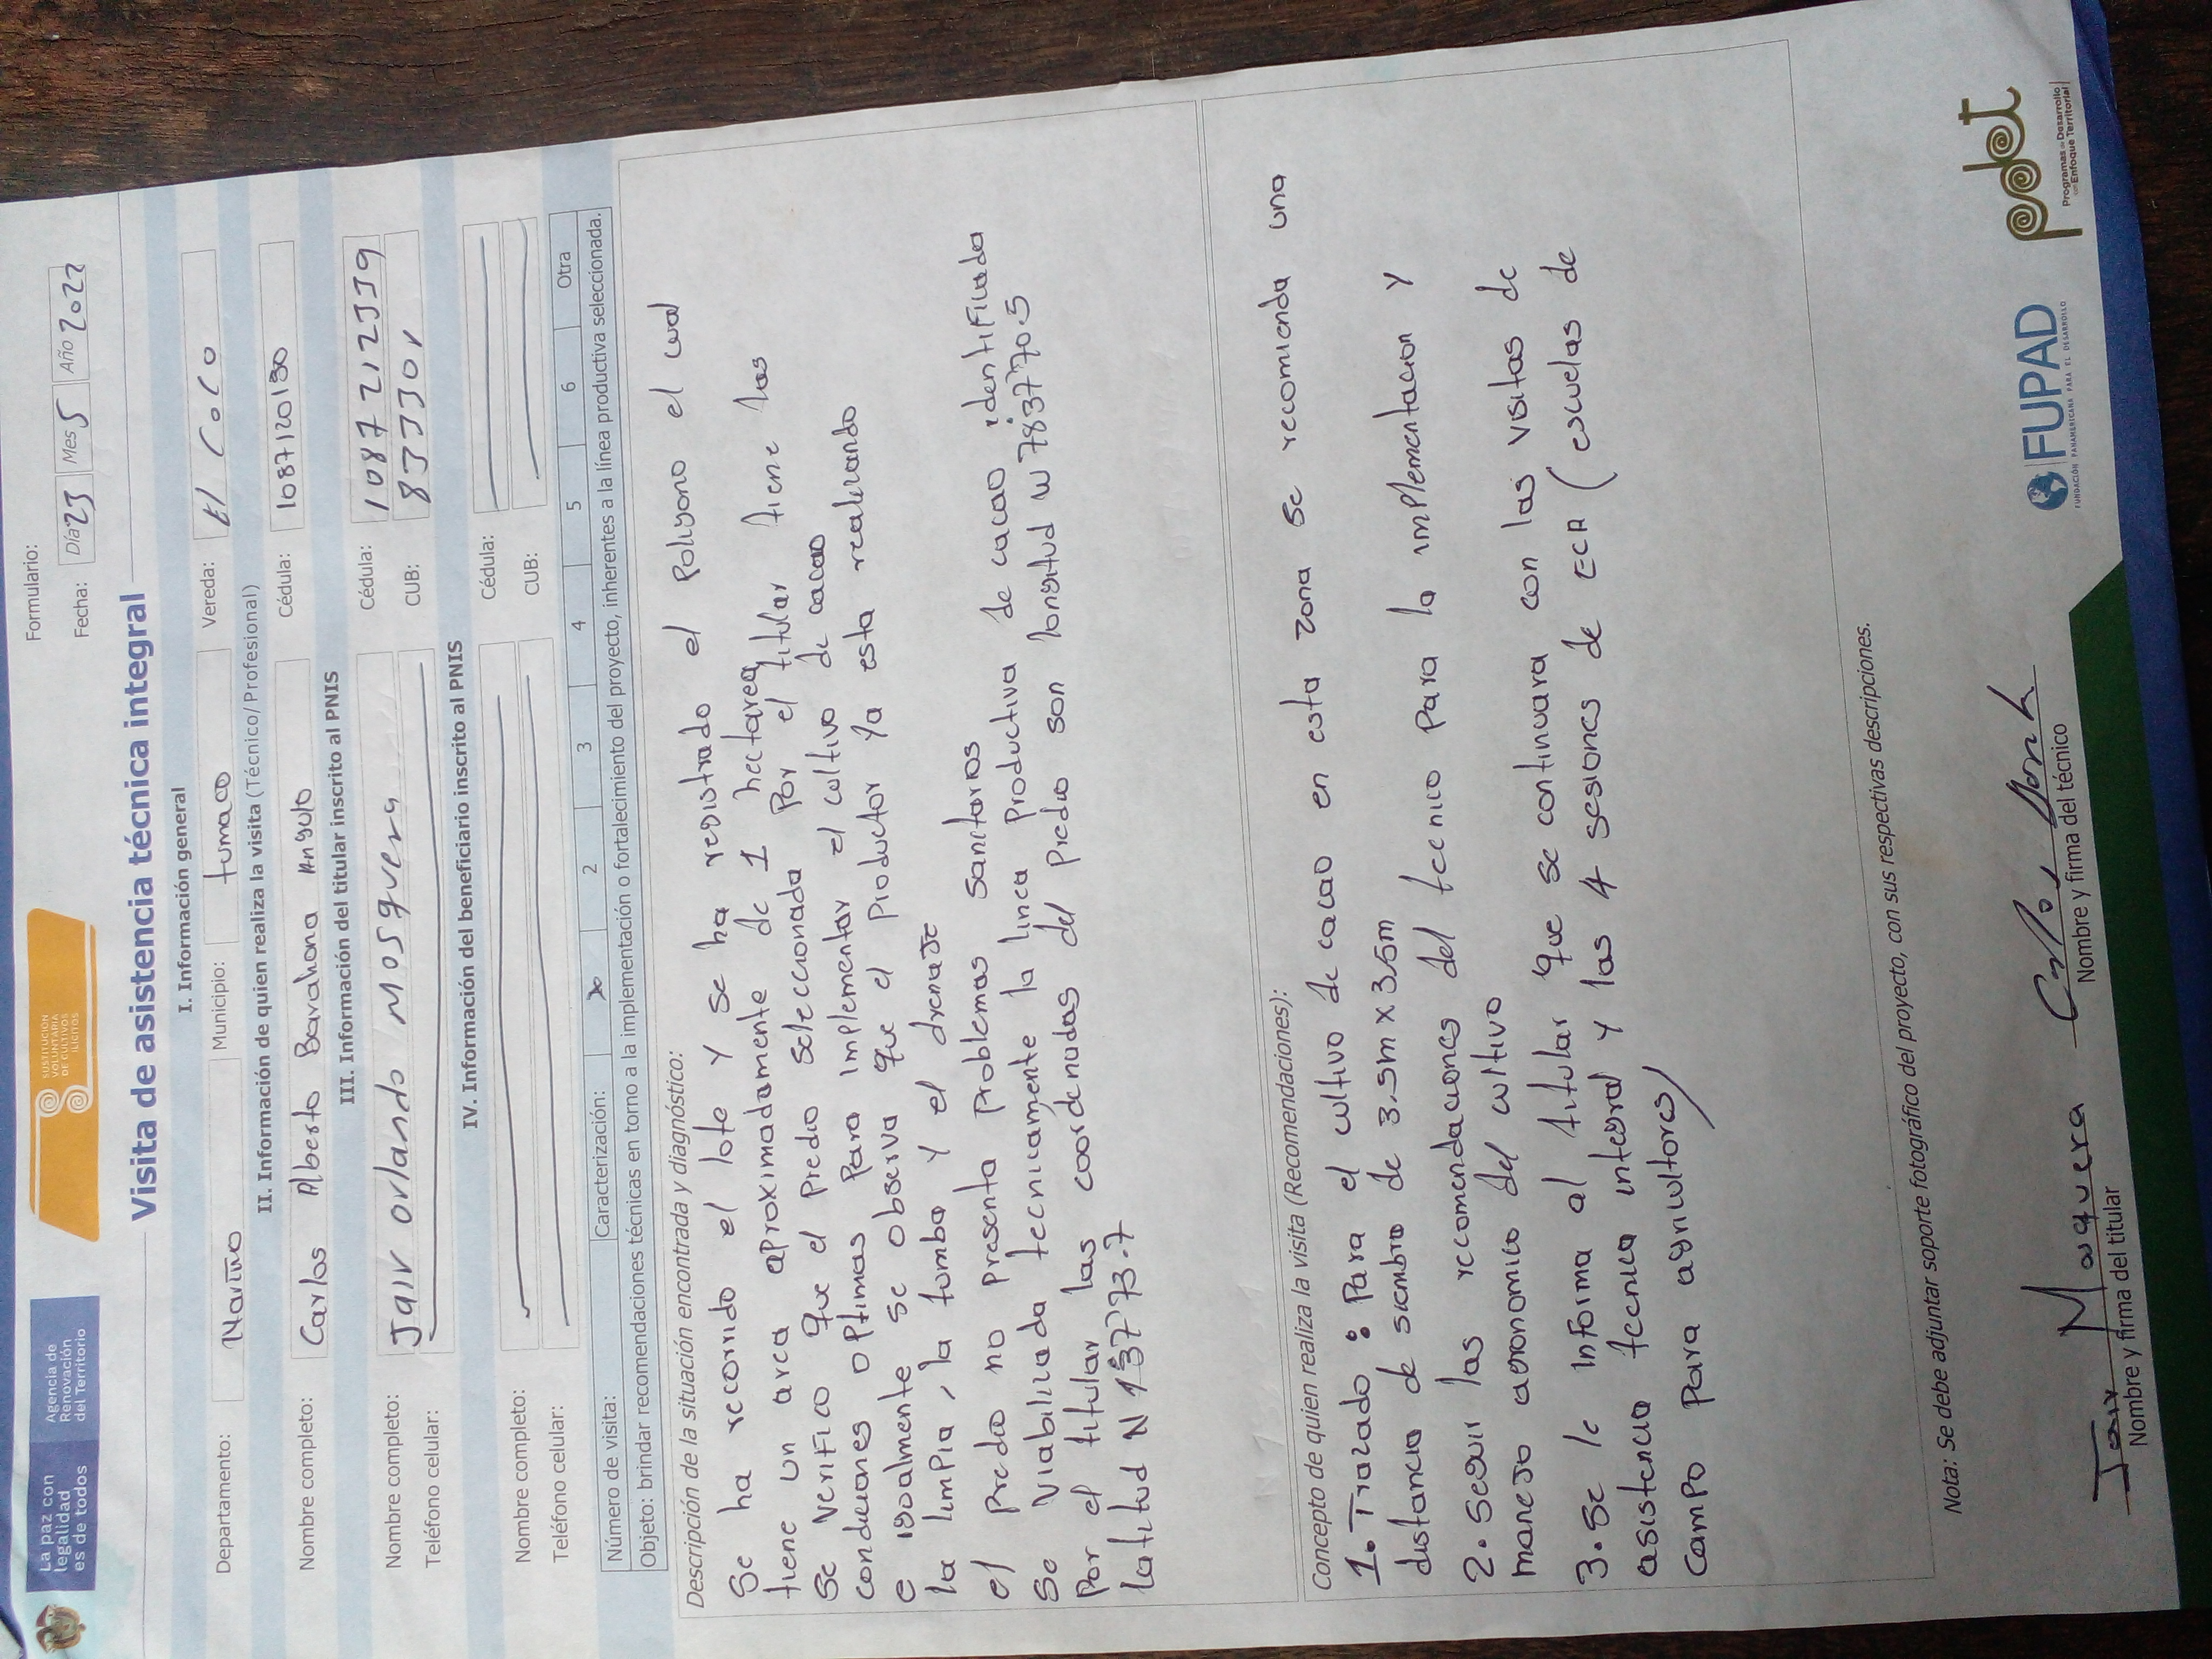 La paz con
legalidad
es de todos
Agencia de
Renovación
del Territorio
SUSTITUCIÓN
VOLUNTARIA
DE CULTIVOS
ILÍCITOS
Formulario:
Fecha: Día 23 Mes 5 Año 2022
Visita de asistencia técnica integral
I. Información general
Departamento: Nariño Municipio: tumaco Vereda: El Coco
II. Información de quien realiza la visita (Técnico/Profesional)
Nombre completo: Carlos Alberto Barahona Angulo Cédula: 1087120180
III. Información del titular inscrito al PNIS
Nombre completo: Jair orlando Mosquera Cédula: 1087212339
Teléfono celular: CUB:
IV. Información del beneficiario inscrito al PNIS
Nombre completo: Cédula:
Teléfono celular: CUB:
Número de visita: Caracterización: X 2 3 4 5 6 Otra
Objeto: brindar recomendaciones técnicas en torno a la implementación o fortalecimiento del proyecto, inherentes a la línea productiva seleccionada.
Descripción de la situación encontrada y diagnóstico:
Se ha recorrido el lote y se ha registrado el Poligono el cual
tiene un area aproximadamente de 1 hectarea
Se verifico que el Predio seleccionada Por el titular tiene las
condiciones optimas Para implementar el cultivo de cacao
e igoalmente se observa que el Productor ya esta realizando
la limpia, la tumba y el drenaje
el Predio no Presenta Problemas Sanitarios
Se viabiliza da tecnicamente la linea Productiva de cacao identificada
Por el titular las coordenadas del Predio son longitud W 78°37'70.5
latitud N 1°37'73.7
Concepto de quien realiza la visita (Recomendaciones):
1. Trazado: Para el cultivo de cacao en esta zona se recomienda una
distancia de siembra de 3.5m x 3.5m
2. Seguir las recomendaciones del tecnico Para la implementacion y
manejo agronomico del cultivo
3. Se le informa al titular que se continuara con las visitas de
asistencia tecnica integral y las 4 sesiones de ECA (escuelas de
Campo Para agricultores)
Nota: Se debe adjuntar soporte fotográfico del proyecto, con sus respectivas descripciones.
Jair Mosquera
Nombre y firma del titular
Nombre y firma del técnico
FUPAD
FUNDACIÓN PANAMERICANA PARA EL DESARROLLO
pdet
Programas de Desarrollo
con Enfoque Territorial